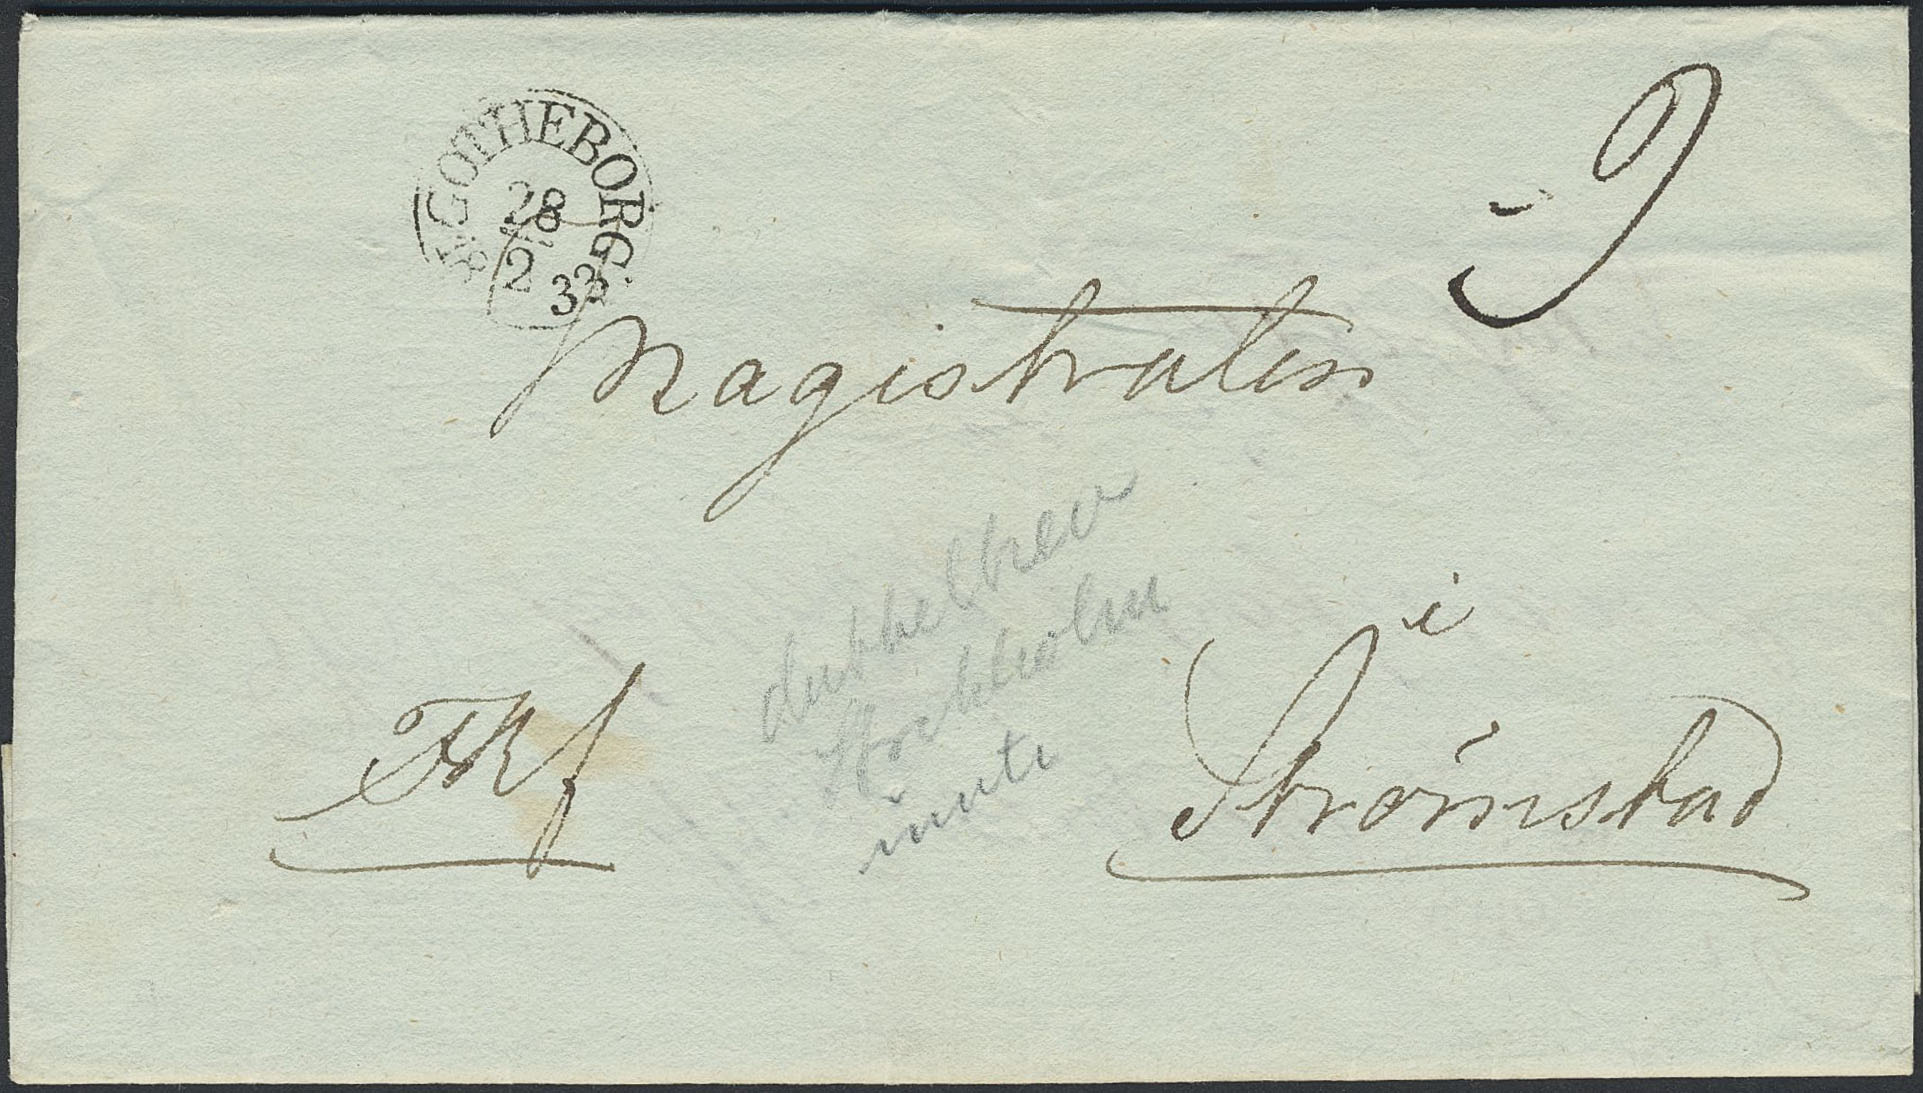 GOTHEBORG.
28
2 33
9
Magistraten
i
Strömstad
dubbelbrev
Stockholm
inuti